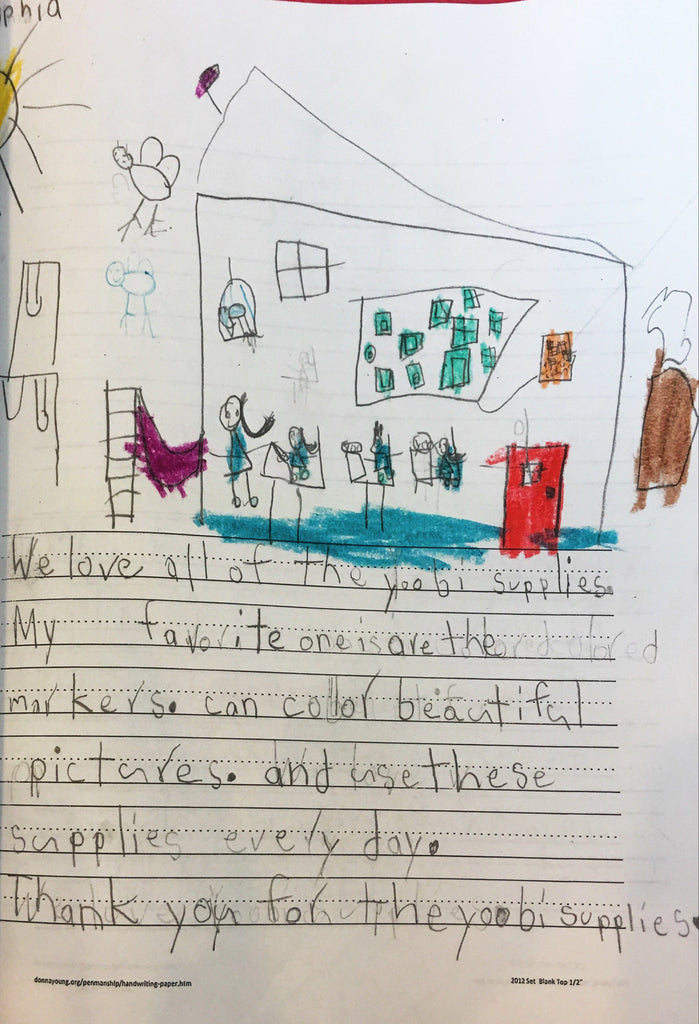 phia
We love all of the yoobi supplies.
My favorite one is are the colored
markers. can color beautiful
pictures. and use these
supplies every day.
Thank you for the yoobi supplies.
donnayoung.org/penmanship/handwriting-paper.htm 2012 Set Blank Top 1/2"